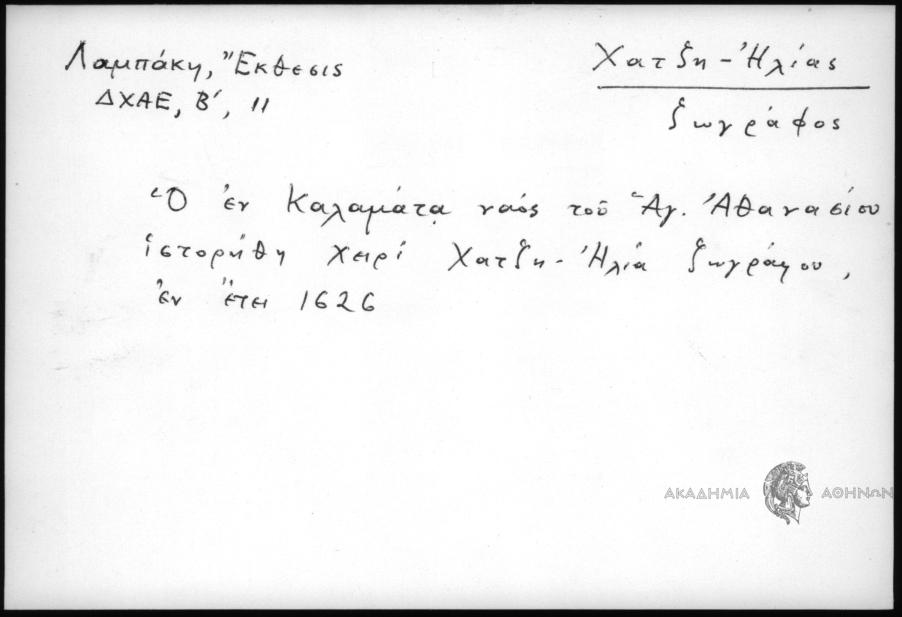 Λαμπάκη, Ἔκθεσις
ΔΧΑΕ, Β', 11
Χατζη-Ἠλίας
ζωγράφος
Ὁ ἐν Καλαμάτᾳ ναός τοῦ Ἁγ. Ἀθανασίου
ἱστορήθη χειρί Χατζη-Ἠλία ζωγράφου,
ἐν ἔτει 1626
ΑΚΑΔΗΜΙΑ ΑΘΗΝΩΝ